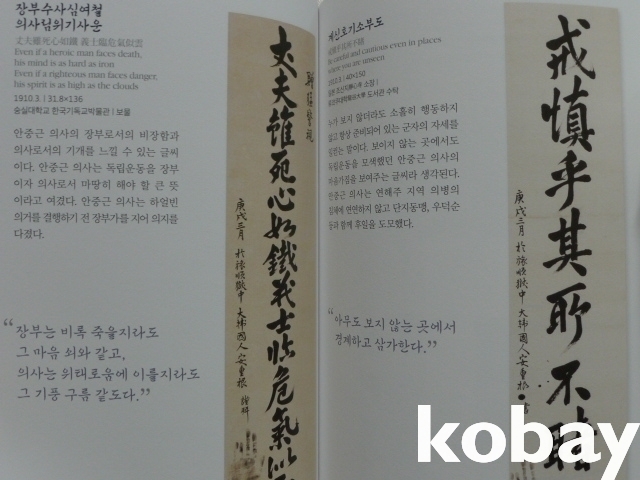 장부수사심여철
의사임위기사운
丈夫雖死心如鐵 義士臨危氣似雲
Even if a heroic man faces death,
his mind is as hard as iron
Even if a righteous man faces danger,
his spirit is as high as the clouds
1910.3. | 31.8×136
숭실대학교 한국기독교박물관 | 보물
안중근 의사의 장부로서의 비장함과
의사로서의 기개를 느낄 수 있는 글씨
이다. 안중근 의사는 독립운동을 장부
이자 의사로서 마땅히 해야 할 큰 뜻
이라고 여겼다. 안중근 의사는 하얼빈
의거를 결행하기 전 장부가를 지어 의지를
다졌다.
“장부는 비록 죽을지라도
그 마음 쇠와 같고,
의사는 위태로움에 이를지라도
그 기풍 구름 같도다.”
丈夫雖死心如鐵義士臨危氣似
庚戌三月 於旅順獄中 大韓國人安重根 謹拜
계신호기소부도
Be careful and cautious even in places
where you are unseen
1910.3. | 40×150
누가 보지 않더라도 소홀히 행동하지
않고 항상 준비되어 있는 군자의 자세를
일컫는 말이다. 보이지 않는 곳에서도
독립운동을 모색했던 안중근 의사의
마음가짐을 보여주는 글씨라 생각된다.
안중근 의사는 연해주 지역 의병의
침체에 연연하지 않고 단지동맹, 우덕순
등과 함께 후일을 도모했다.
“아무도 보지 않는 곳에서
경계하고 삼가한다.”
戒愼乎其所不睹
庚戌三月 於旅順獄中 大韓國人安重根 書
kobay